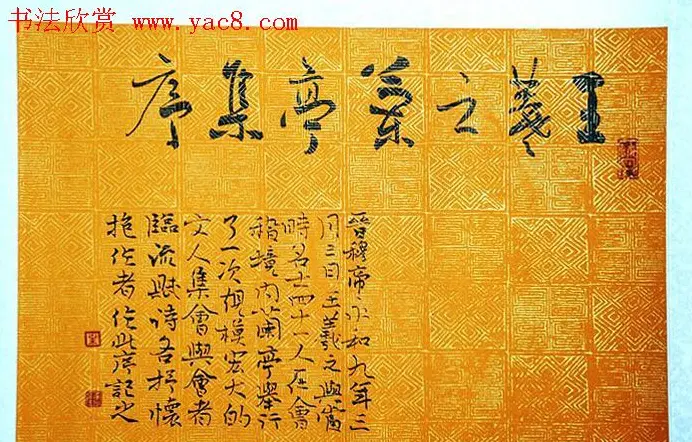 书法欣赏 www.yac8.com
王羲之蘭亭集序
晉穆帝永和九年三
月三日王羲之與當
時名士四十一人在會
稽境内蘭亭舉行
了一次規模宏大的
文人集會與會者
臨流賦詩各抒懷
抱作者作此序記之